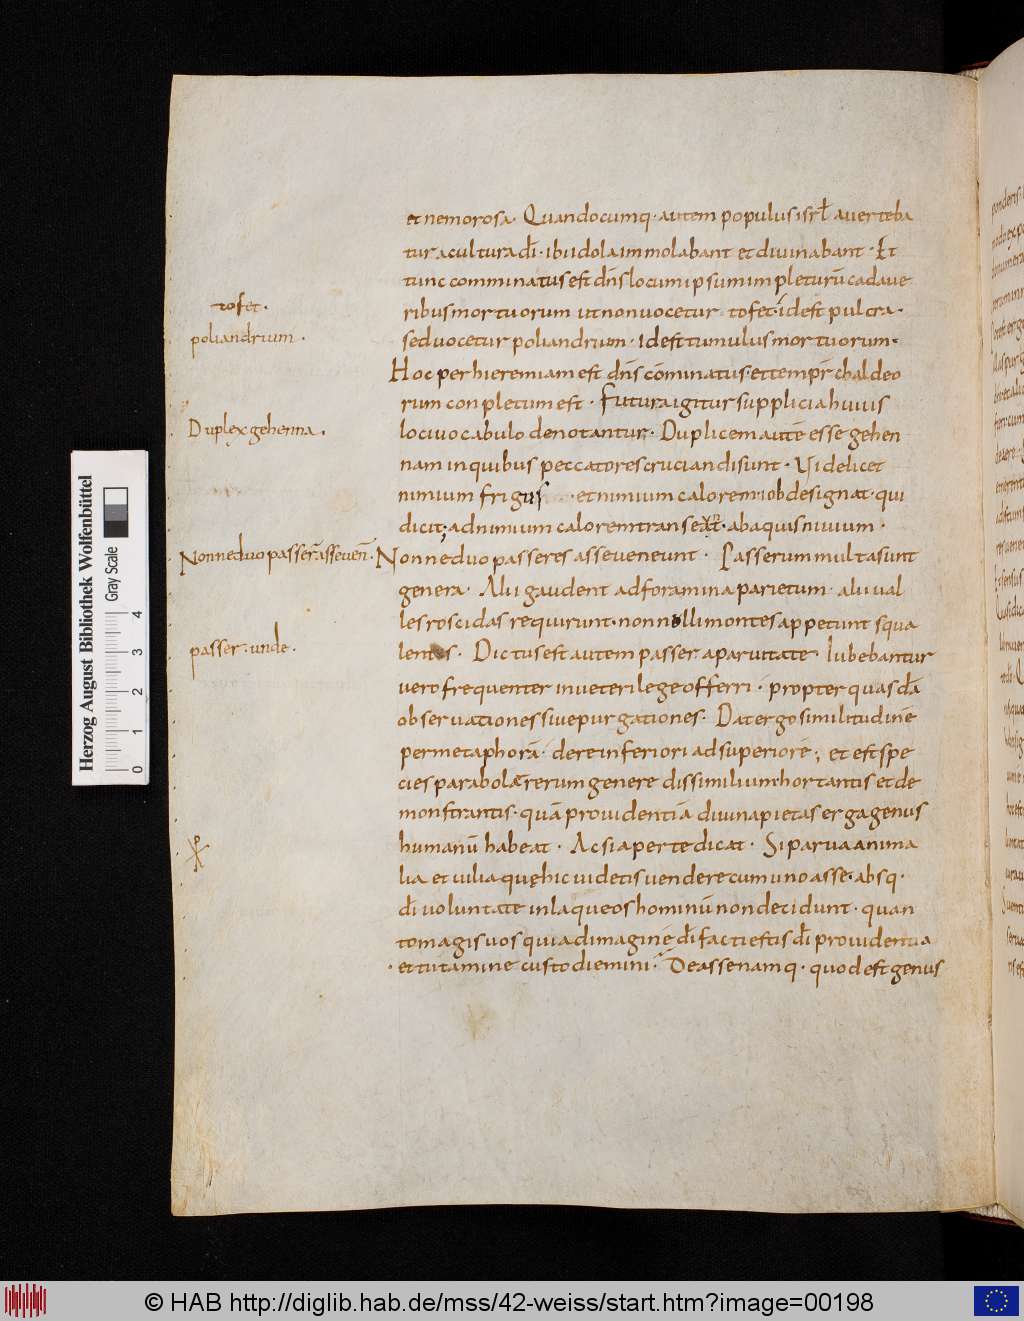 et nemorosa. Quandocumq. autem populus isrł auerteba
tur a cultura dī. ibi idola immolabant et diuinabant. Et
tunc comminatus est dn̄s locum ipsum impleturū cadaue
ribus mortuorum ut non uocetur tofet. id est pulcra.
sed uocetur poliandrium. Id est tumulus mortuorum.
Hoc per hieremiam est dn̄s cōminatus. et temp̄r chaldeo
rum conpletum est. Futura igitur supplicia huius
loci uocabulo denotantur. Duplicem autē esse gehen
nam in quibus peccatores cruciandi sunt. Videlicet
nimium frigus et nimium calorem. iob designat. qui
dicit; ad nimium calorem ab aquis niuium.
Nonne duo passeres asse ueneunt. Passerum multa sunt
genera. Alii gaudent ad foramina parietum. alii ual
les roscidas requirunt. nonnulli montes appetunt squa
lentes. Dictus est autem passer a paruitate. Iubebantur
uero frequenter in ueteri lege offerri. propter quasdā
obseruationes siue purgationes. Dat ergo similitudinē
per metaphorā. de re inferiori ad superiorē; et est spe
cies parabolæ rerum genere dissimilium. hortantis et de
monstrantis. quā prouidentiā diuina pietas erga genus
humanū habeat. Ac si aperte dicat. Si parua anima
lia et uilia quę hic uidetis uendere cum uno asse. absq.
dī uoluntate in laqueos hominū non decidunt. quan
to magis uos qui ad imaginē dī facti estis dī prouidentia
et tutamine custodiemini. De asse namq. quod est genus
tofet.
poliandrium.
Duplex gehenna.
Nonne duo passer̄ asse uen̄.
passer. unde.
Herzog August Bibliothek Wolfenbüttel
Gray Scale
0 1 2 3 4
© HAB http://diglib.hab.de/mss/42-weiss/start.htm?image=00198